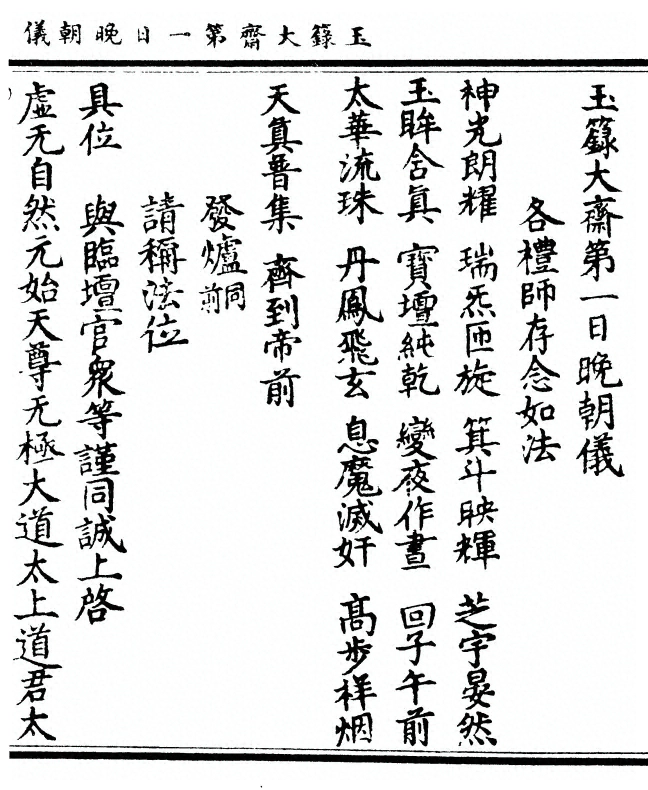 玉籙大齋第一日晚朝儀
玉籙大齋第一日晚朝儀
各禮師存念如法
神光朗耀 瑞炁匝旋 箕斗映輝 芝宇晏然
玉眸含真 寶壇純乾 變夜作晝 回子午前
太華流珠 丹鳳飛玄 息魔滅奸 高步祥烟
天真普集 齊到帝前
發爐同前
請稱法位
具位 與臨壇官眾等謹同誠上啓
虛无自然元始天尊无極大道太上道君太